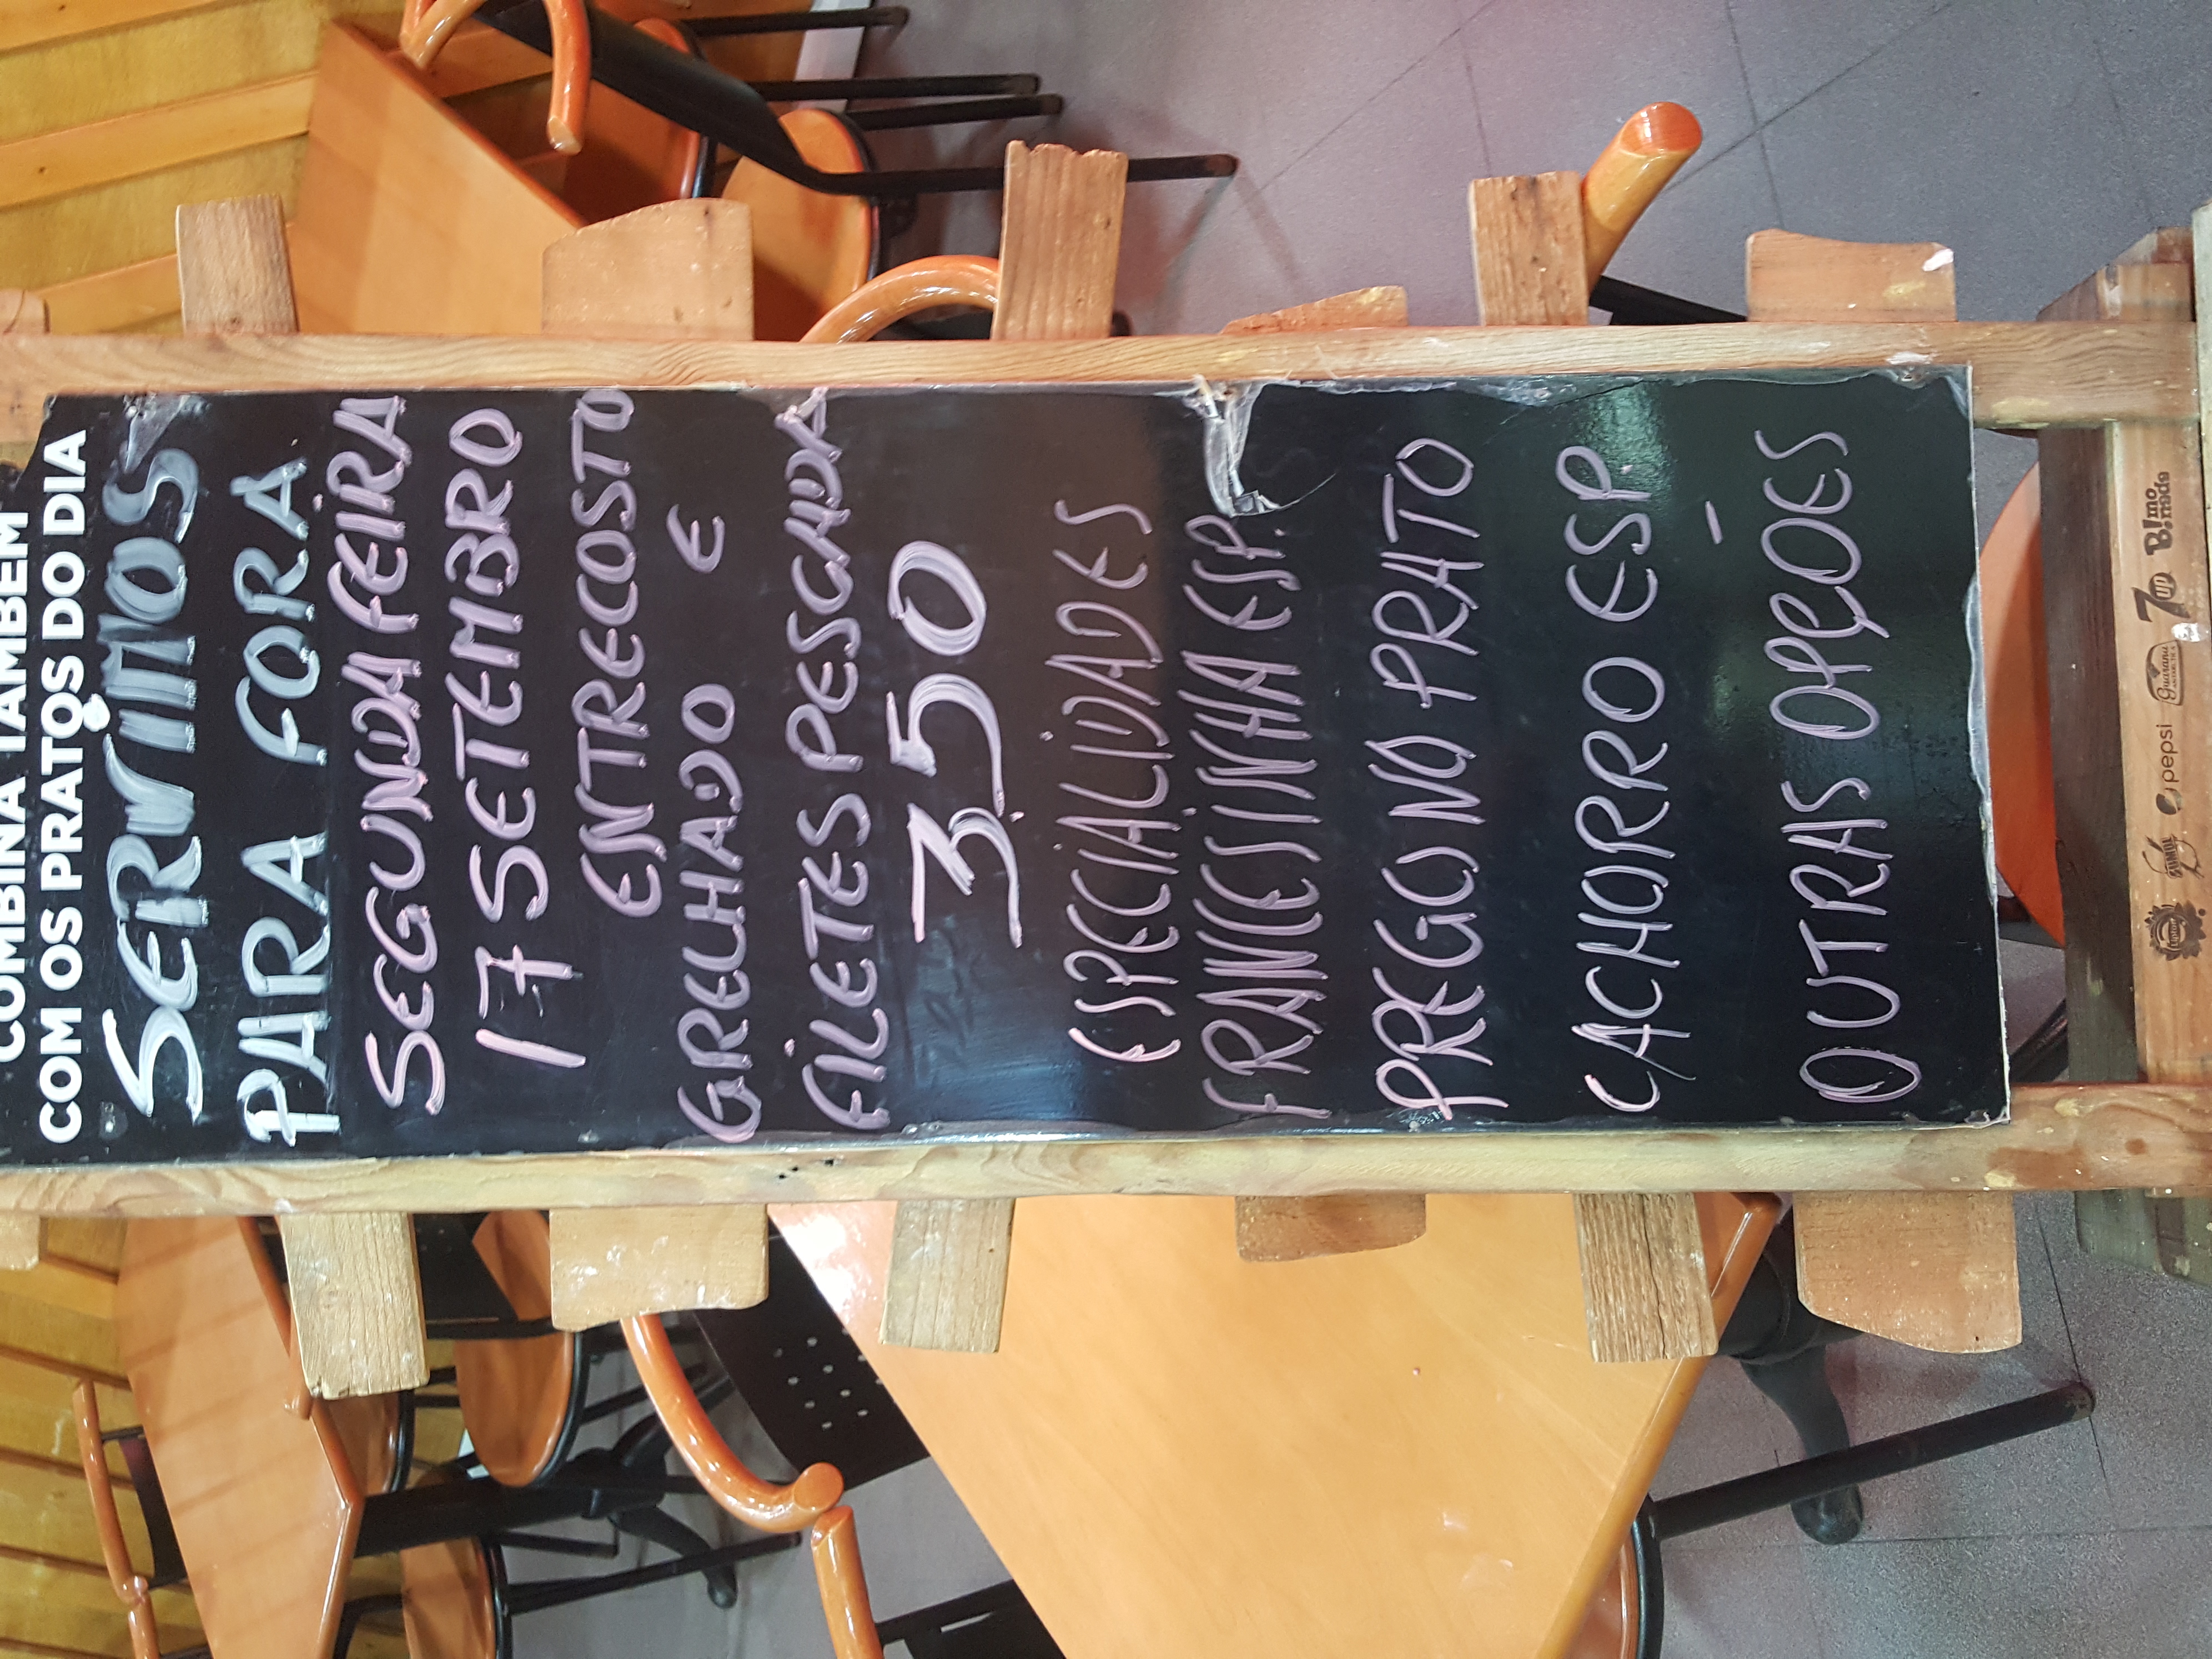 COMBINA TAMBÉM
COM OS PRATOS DO DIA
SERVIMOS
PARA FORA
SEGUNDA FEIRA
17 SETEMBRO
ENTRECOSTO
GRELHADO E
FILETES PESCADA
3.50
ESPECIALIDADES
FRANCESINHA ESP.
PREGO NO PRATO
CACHORRO ESP
-
OUTRAS OPÇOES
Lipton SUMOL pepsi Guaraná ANTARCTICA 7UP B!